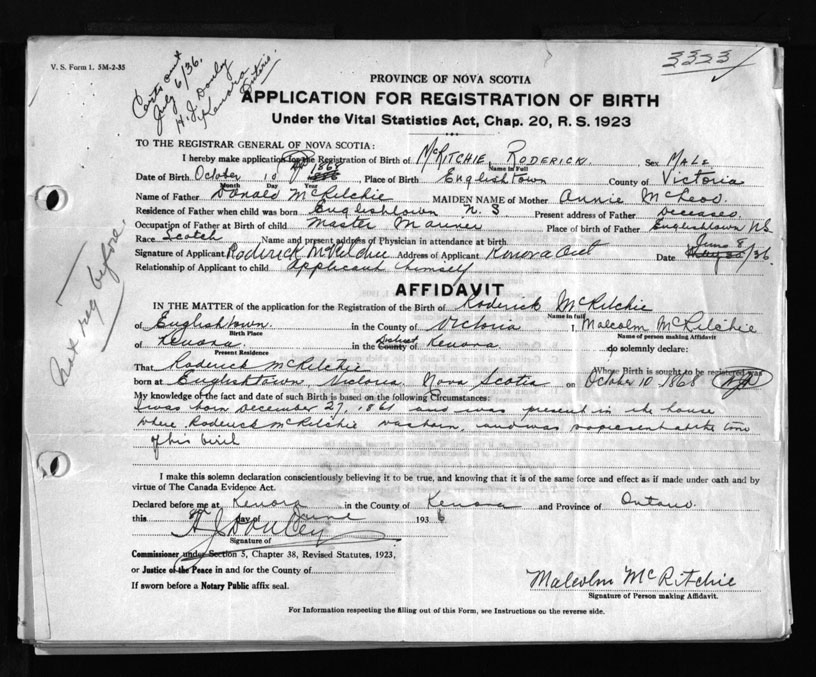 V. S. Form L 5M-2-35
July 6/36.
Kenora
Ontario.
3323
PROVINCE OF NOVA SCOTIA
APPLICATION FOR REGISTRATION OF BIRTH
Under the Vital Statistics Act, Chap. 20, R. S. 1923
TO THE REGISTRAR GENERAL OF NOVA SCOTIA:
I hereby make application for the Registration of Birth of McRITCHIE, RODERICK. Sex MALE
Name in Full
Date of Birth October 10 1868 Place of Birth Englishtown County of Victoria
Month Day Year
Name of Father Donald McRitchie MAIDEN NAME of Mother Annie McLeod.
Residence of Father when child was born Englishtown N. S Present address of Father Deceased
Occupation of Father at Birth of child Master Mariner Place of birth of Father Englishtown NS
Race Scotch Name and present address of Physician in attendance at birth
June 8
Signature of Applicant Roderick McRitchie Address of Applicant Kenora Ont Date /36.
Relationship of Applicant to child Applicant himself
AFFIDAVIT
IN THE MATTER of the application for the Registration of the Birth of Roderick McRitchie
Name in full
of Englishtown. in the County of Victoria I, Malcolm McRitchie
Birth Place Name of person making Affidavit
of Kenora. in the County District of Kenora do solemnly declare:
Present Residence
That Roderick McRitchie Whose Birth is sought to be registered was
born at Englishtown, Victoria, Nova Scotia on October 10 1868
My knowledge of the fact and date of such Birth is based on the following Circumstances:
I was born December 27, 1861 and was present in the house
where Roderick McRitchie was born, and was present at the time
of his birth
Not reg before.
I make this solemn declaration conscientiously believing it to be true, and knowing that it is of the same force and effect as if made under oath and by
virtue of The Canada Evidence Act.
Declared before me at Kenora in the County of Kenora and Province of Ontario.
this 8th day of June 1936
Signature of
Commissioner under Section 5, Chapter 38, Revised Statutes, 1923,
or Justice of the Peace in and for the County of
If sworn before a Notary Public affix seal.
Malcolm McRitchie
Signature of Person making Affidavit.
For Information respecting the filling out of this Form, see Instructions on the reverse side.